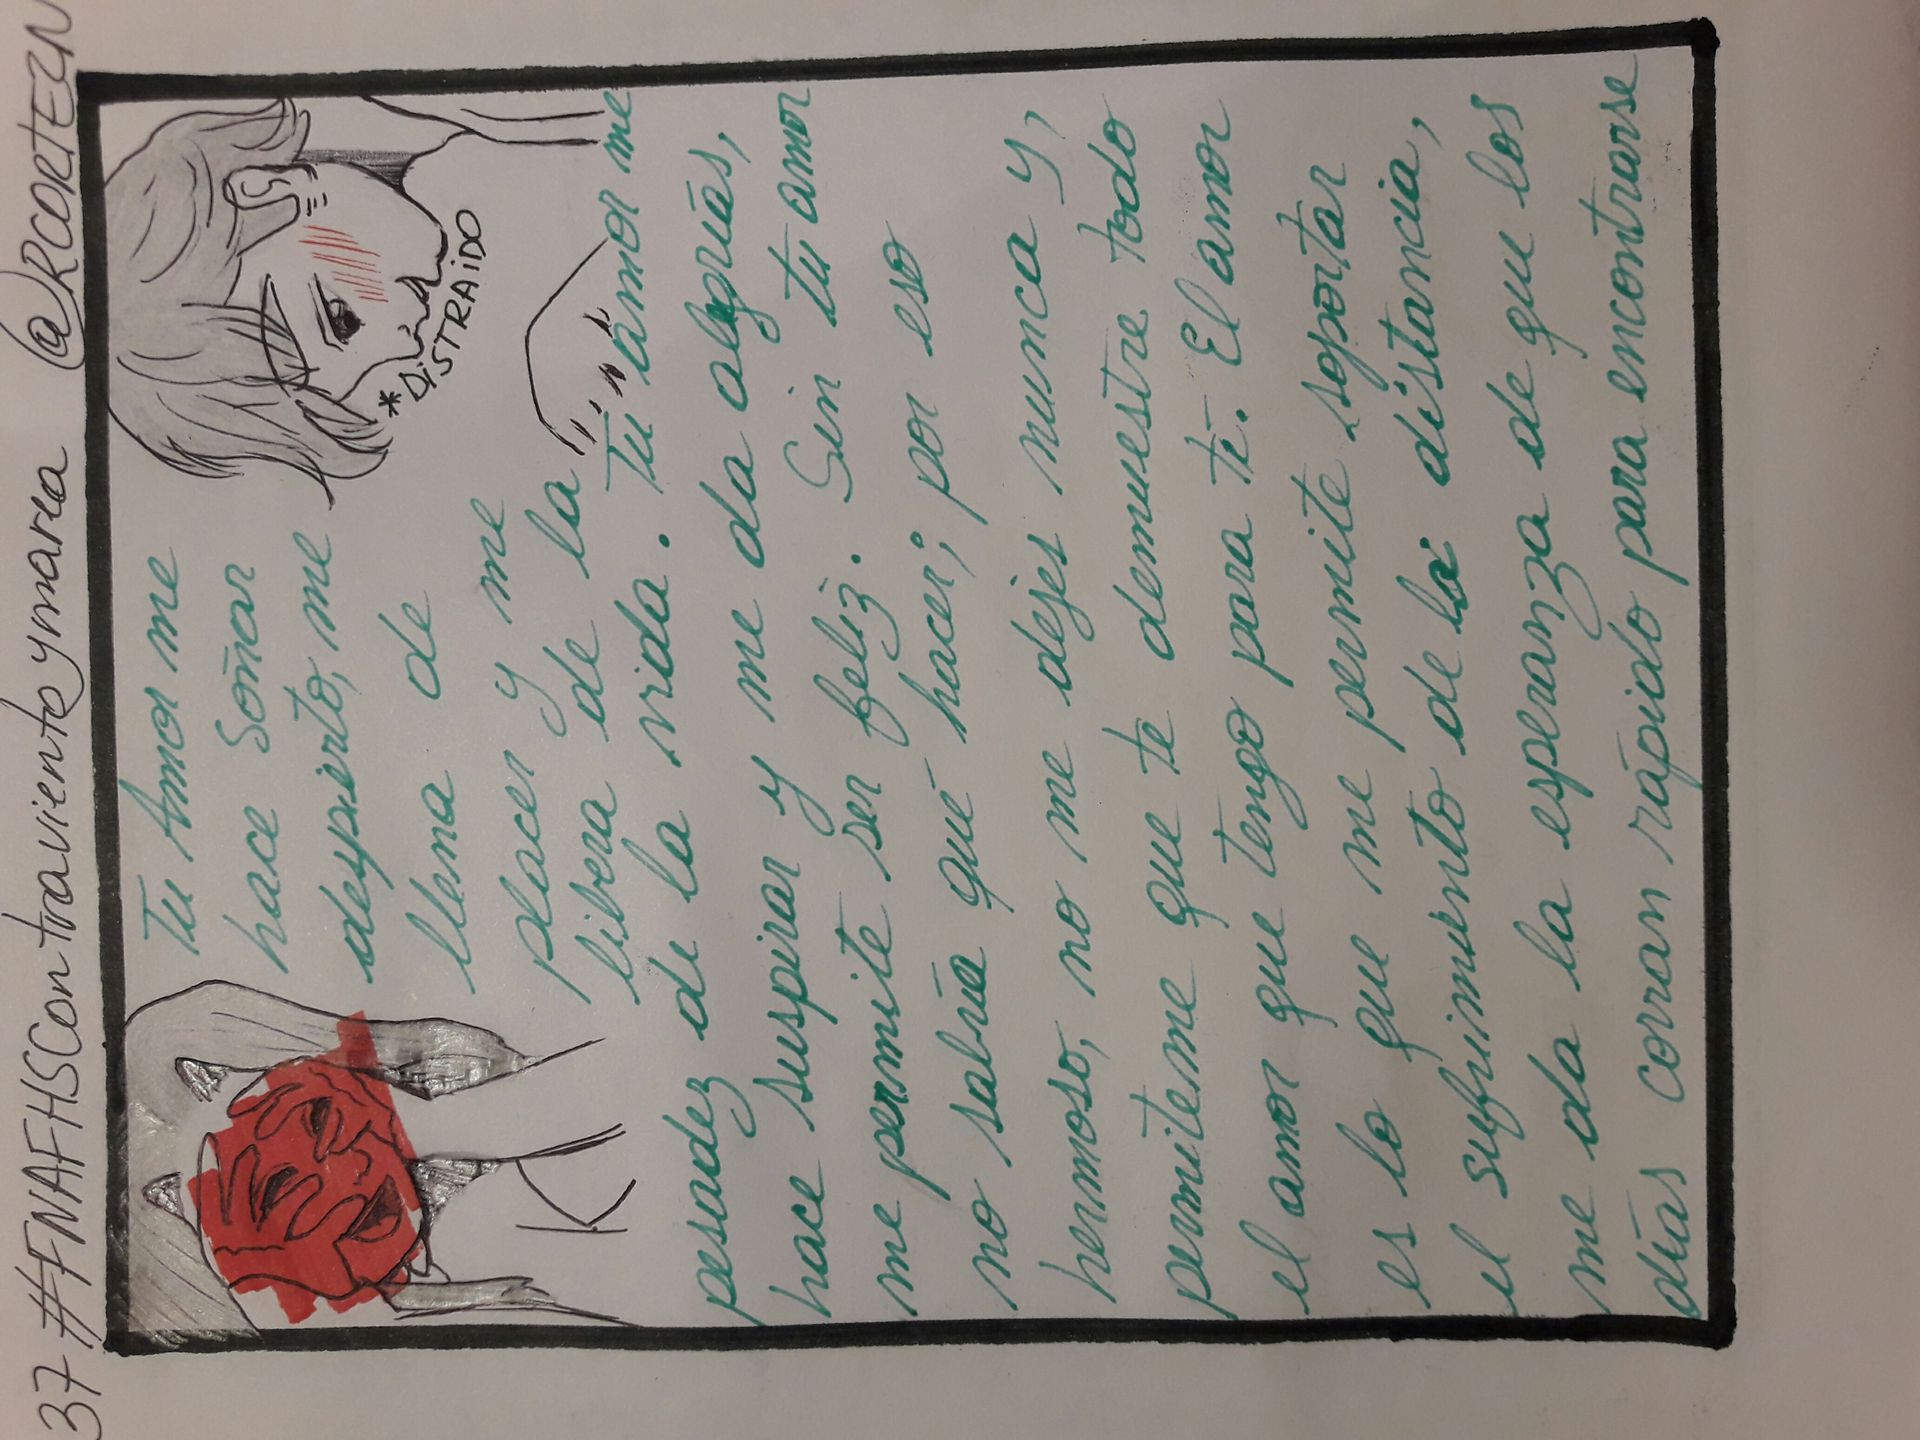 37 #FNAFHSContravientoymarea @RCORTEZN
*DiSTRAiDO
Tu Amor me
hace soñar
despierto, me
llena de
placer y me
libera de la
pesadez de la vida. Tu amor me
hace suspirar y me da alegrías,
me permite ser feliz. Sin tu amor
no sabría qué hacer; por eso
hermoso, no me dejes nunca y,
permiteme que te demuestre todo
el amor que tengo para ti. El amor
es lo que me permite soportar
el sufrimiento de la distancia,
me da la esperanza de que los
días corran rápido para encontrarse